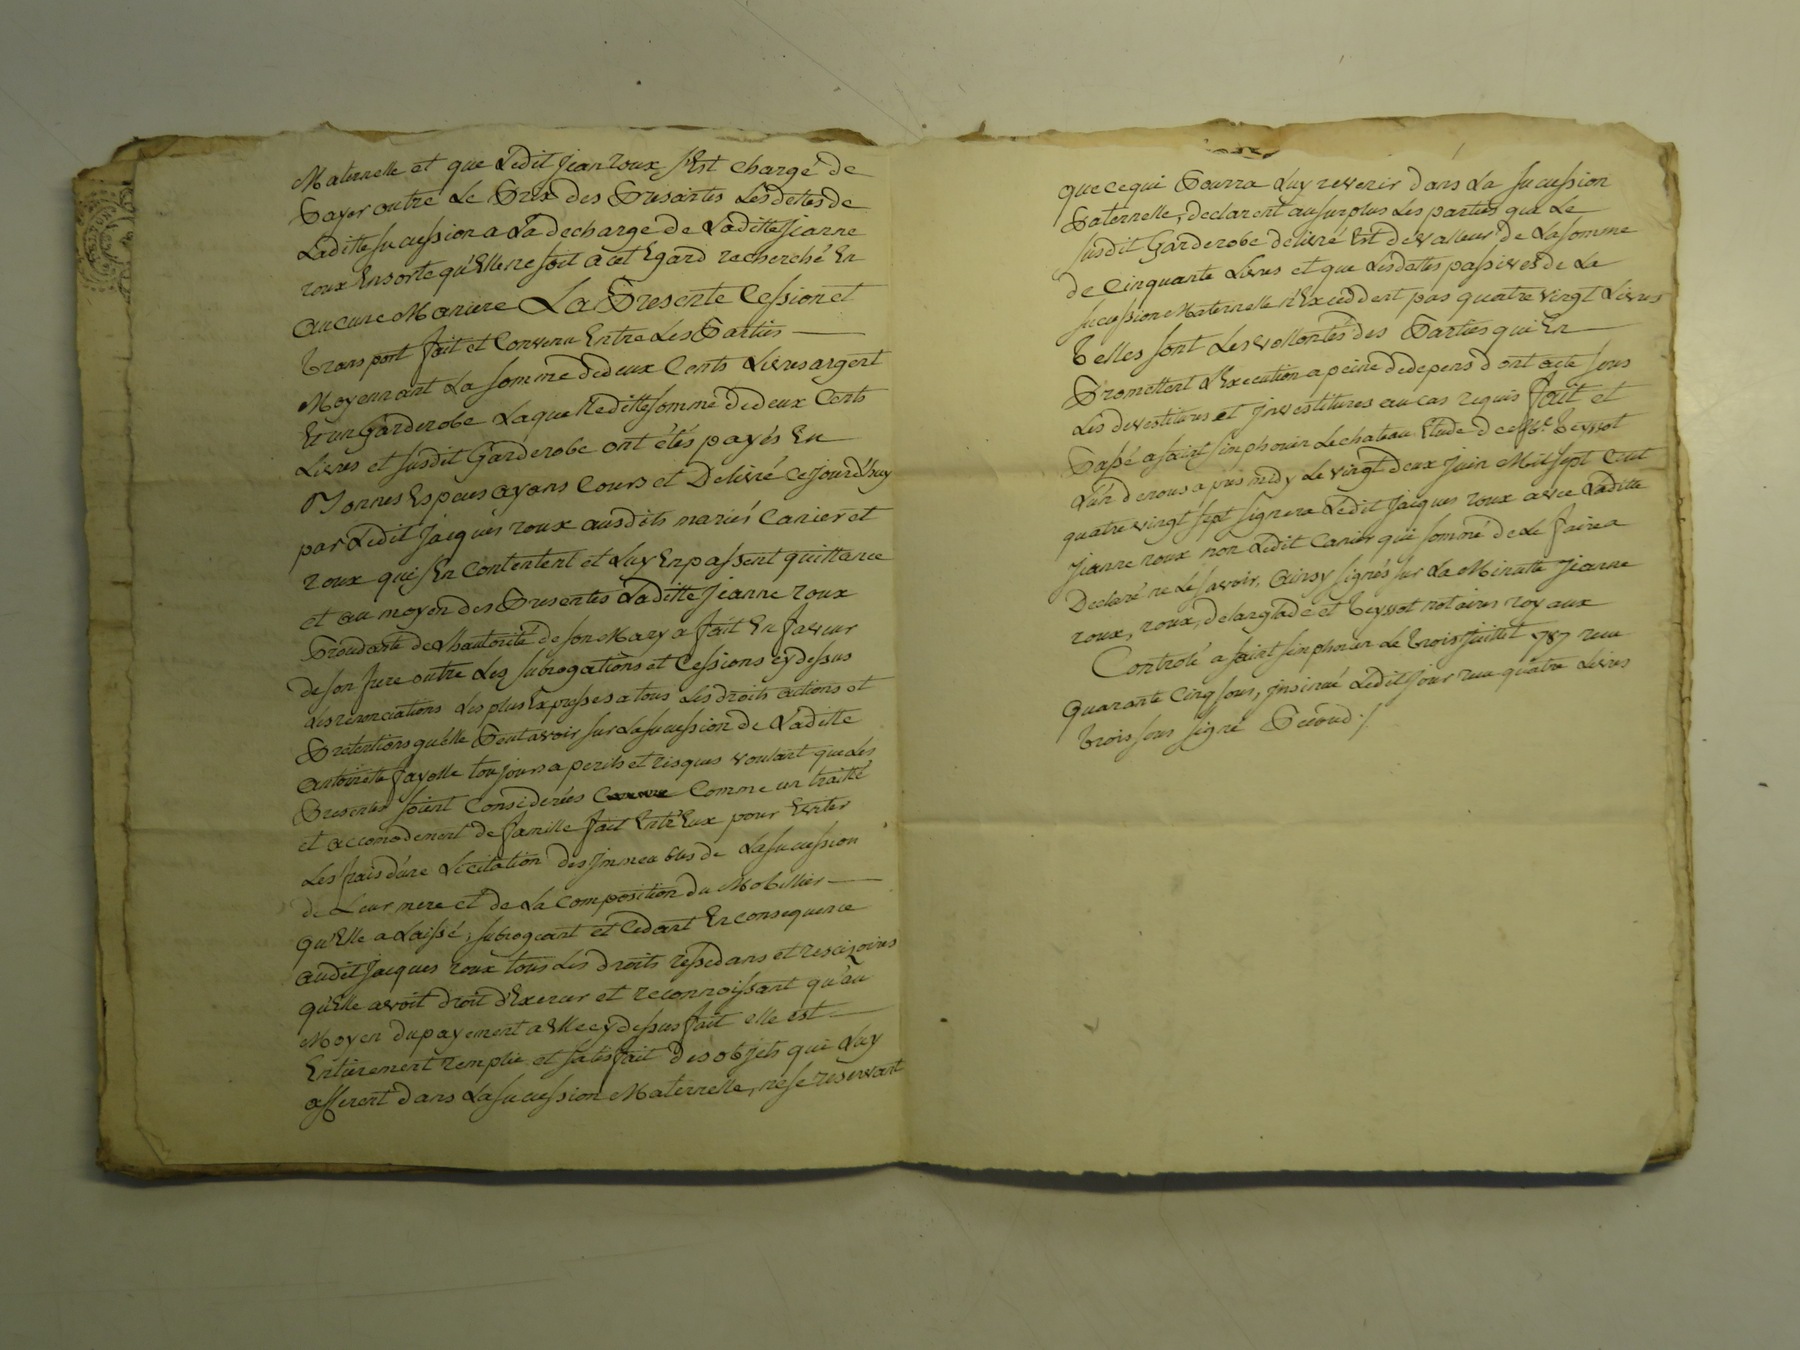 Maternelle et que Ledit Jean roux s'Est chargé de
Payer outre Le Prix des Presantes Les dettes de
Laditte sucession a La decharge de Laditte Jeanne
roux Ensorte qu'Elle ne soit a cet Egard recherché En
aucune Maniere La Presente Cession et
transport fait et Convenu Entre Les Parties
Moyennant La somme de deux Cents Livres argent
Et un Garderobe Laquelle ditte somme de deux Cents
Livres et susdit Garderobe ont étés payés En
Bonnes Especes ayans Cours et Delivré Cejourd'huy
par Ledit Jacques roux ausdits mariés Canier et
roux qui s'En Contentent et Luy En passent quittance
et au moyen des Presentes Laditte Jeanne roux
Procedante de L'hautorité de son Mary a fait En faveur
de son frere outre Les subrogations et Cessions cy dessus
Les renonciations Les plus Expresses a tous Les droits actions et
Pretentions qu'elle Peut avoir sur La sucession de Laditte
antoinette fayolle toujours a perils et risques voulant que Les
Presentes soient Considerées Comme un traitté
et accomodement de famille fait Entr'Eux pour Eviter
Les frais d'une Licitation des Jmmeubles de La sucession
de Leur mere et de La Composition du Mobillier
qu'Elle a Laissé, subrogeant et Cedant En consequence
audit Jacques roux tous Les droits rescindans et rescizoires
qu'Elle avoit droit d'Exercer et reconnoissant qu'au
Moyen du payement a Elle cy dessus fait elle est
Entierement remplie et satisfait des objets qui Luy
afferent dans La sucession Maternelle, ne se reservant
que ce qui Pourra Luy revenir dans La sucession
Paternelle, declarent au surplus Les parties que Le
susdit Garderobe delivré Est de valleur de La somme
de Cinquante Livres et que Les dettes passives de La
sucession Maternelle n'Exceddent pas quatre vingt Livres
telles sont Les vollontés des Parties qui En
Promettent L'Execution a peine de depens dont acte sous
Les devestitures et Jnvestitures au cas requis fait et
Passé a saint simphorien Le chateau Etude de Me. teyssot
L'un de nous apres midy Le vingt deux Juin Mil sept Cent
quatre vingt sept signera Ledit Jacques roux avec Laditte
Jeanne roux non Ledit Canier qui sommé de Le faire a
Declaré ne Le savoir, ainsy signés sur La Minutte Jeanne
roux, roux, delanglade et teyssot notaires royaux
Controlé a saint simphorien Le trois Juillet 1787 recu
quarante Cinq sous, jnsinué Ledit jour recu quatre Livres
trois sous signé